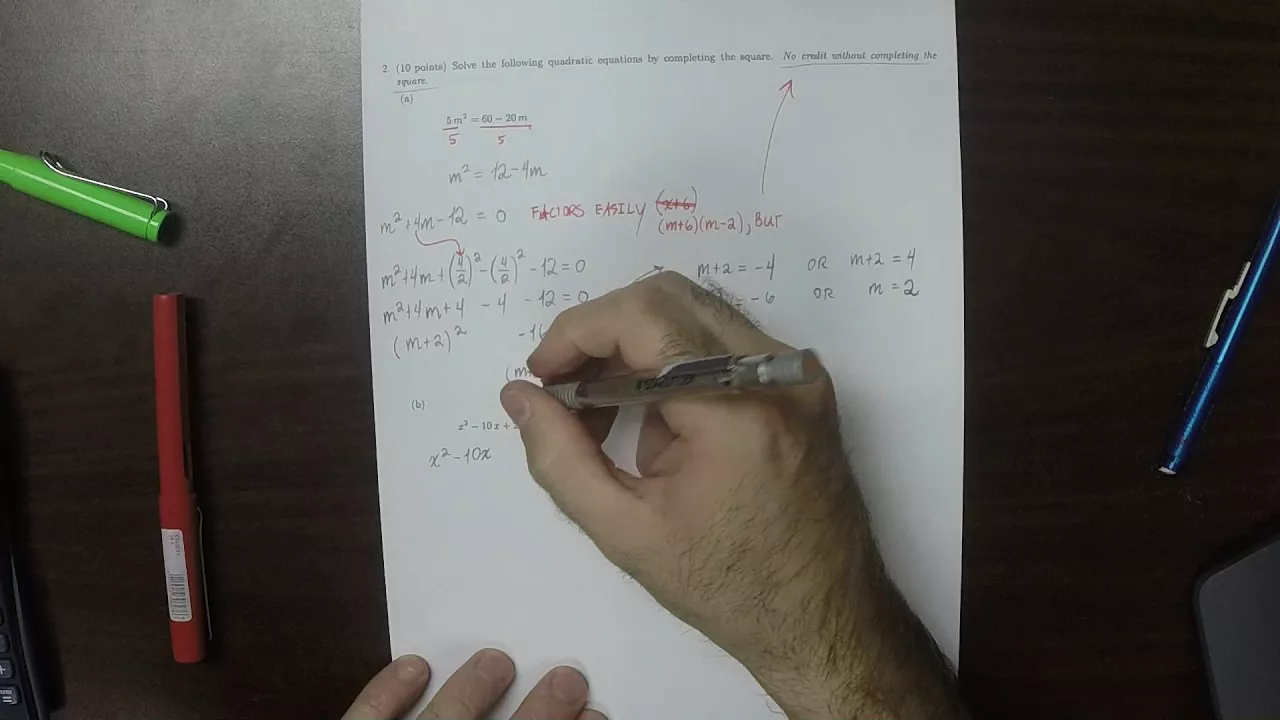 2. (10 points) Solve the following quadratic equations by completing the square. No credit without completing the
square.
(a)
5m² = 60 − 20m
5 5
m² = 12 − 4m
m² + 4m − 12 = 0 FACTORS EASILY (x+6)
(m+6)(m−2), BUT
m² + 4m + (4/2)² − (4/2)² − 12 = 0
m+2 = −4 OR m+2 = 4
m² + 4m + 4 − 4 − 12 = 0
= −6 OR m = 2
(m+2)² −16
(m+
(b)
x² − 10x +
x² − 10x